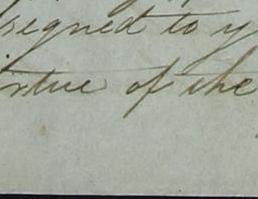 signed to y
rtue of the